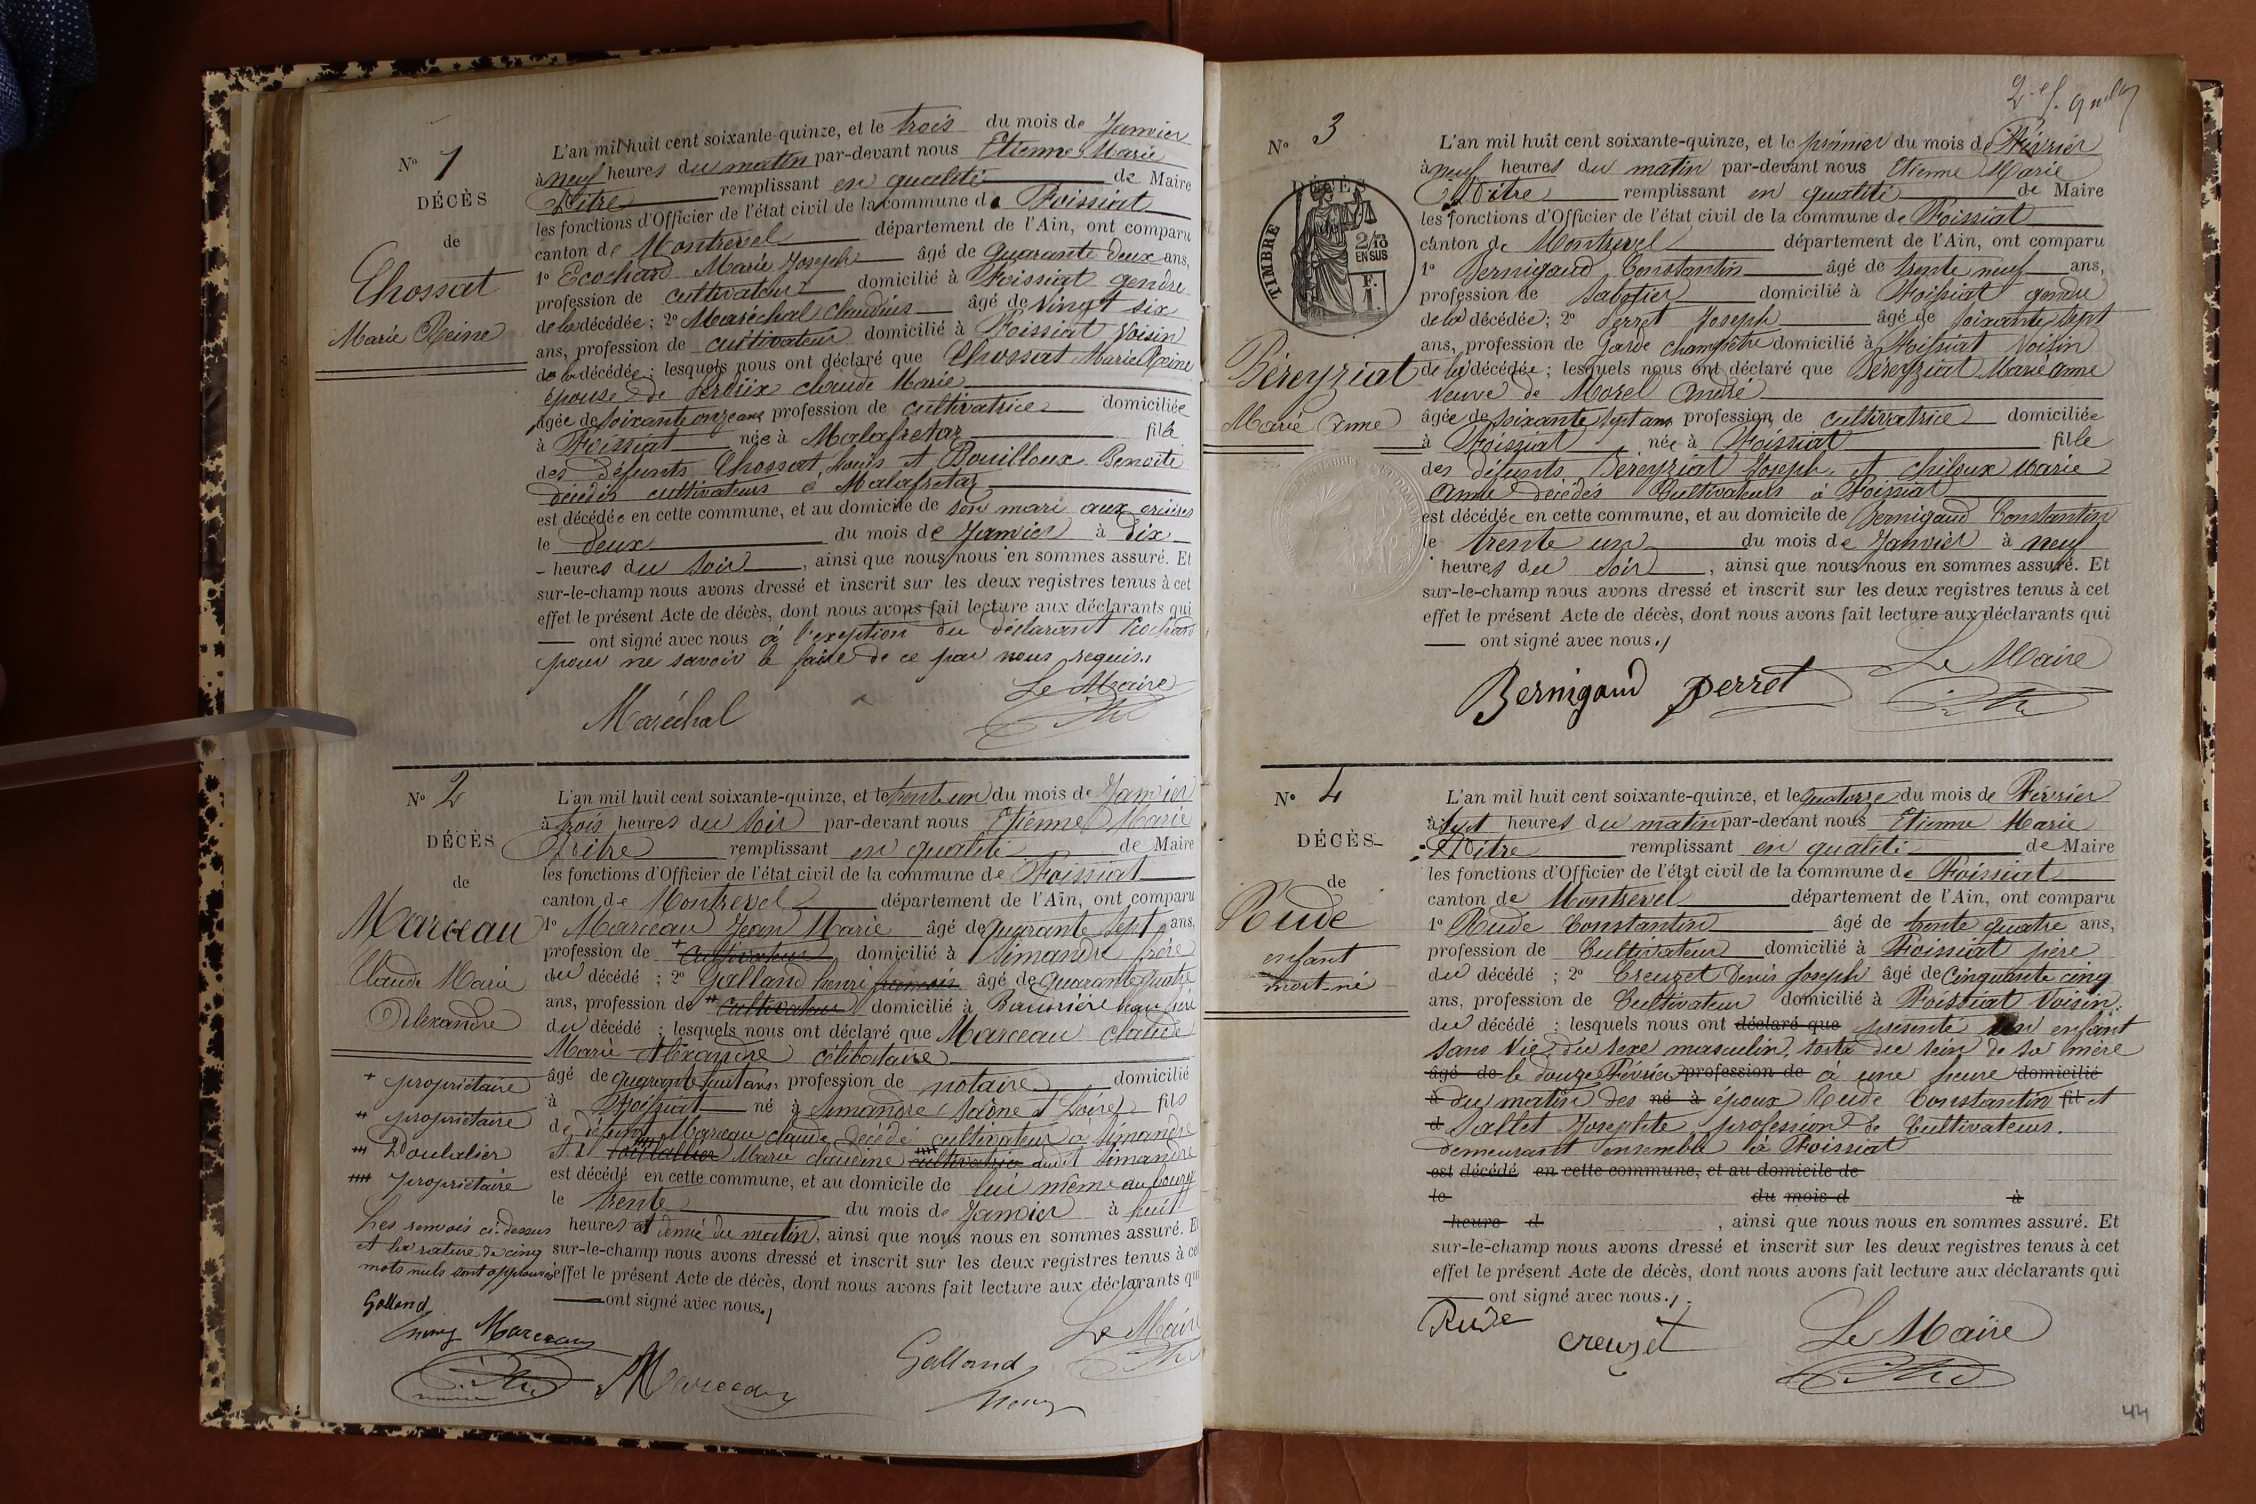 N° 1
DÉCÈS
de
Chossat
Marie Reine
L'an mil huit cent soixante-quinze, et le trois du mois de Janvier
à neuf heures du matin par-devant nous Etienne Marie
Pitre remplissant en qualité de Maire
les fonctions d'Officier de l'état civil de la commune de Foissiat
canton de Montrevel département de l'Ain, ont comparu
1° Ecochard Marie Joseph âgé de quarante deux ans,
profession de cultivateur domicilié à Foissiat gendre
de la décédée; 2° Maréchal Claudius âgé de vingt six
ans, profession de cultivateur domicilié à Foissiat voisin
de la décédée; lesquels nous ont déclaré que Chossat Marie Reine
épouse de Perdrix Claude Marie
âgée de soixante onze ans profession de cultivatrice domiciliée
à Foissiat née à Malafretaz fille
des défunts Chossat Louis et Bouilloux Benoite
décédés cultivateurs à Malafretaz
est décédée en cette commune, et au domicile de son mari aux
le deux du mois de Janvier à dix
heures du soir, ainsi que nous nous en sommes assuré. Et
sur-le-champ nous avons dressé et inscrit sur les deux registres tenus à cet
effet le présent Acte de décès, dont nous avons fait lecture aux déclarants qui
ont signé avec nous à l'exeption du déclarant Ecochard
pour ne savoir le faire de ce par nous requis.
Le Maire
Maréchal
N° 2
DÉCÈS
de
Marceau
Claude Marie
Alexandre
+ propriétaire
++ propriétaire
+++ Doulalier
++++ propriétaire
Les renvois ci-dessus
et la rature de cinq
mots nuls sont approuvés
Galland
henry Marceau
L'an mil huit cent soixante-quinze, et le trente un du mois de Janvier
à trois heures du soir par-devant nous Etienne Marie
Pitre remplissant en qualité de Maire
les fonctions d'Officier de l'état civil de la commune de Foissiat
canton de Montrevel département de l'Ain, ont comparu
1° Marceau Jean Marie âgé de quarante sept ans,
profession de + cultivateur domicilié à Simandre frère
du décédé; 2° Galland henri francois âgé de quarante quatre
ans, profession de ++ cultivateur domicilié à beau frère
du décédé; lesquels nous ont déclaré que Marceau Claude
Marie Alexandre célibataire
âgé de quarante huit ans profession de notaire domicilié
à Foissiat né à Simandre (Saône et Loire) fils
de défunt Marceau Claude décédé cultivateur à Simandre
et Marie Claudine cultivatrice audit Simandre
est décédé en cette commune, et au domicile de lui même au bourg
le trente du mois de Janvier à huit
heures et demie du matin, ainsi que nous nous en sommes assuré. Et
sur-le-champ nous avons dressé et inscrit sur les deux registres tenus à cet
effet le présent Acte de décès, dont nous avons fait lecture aux déclarants qui
ont signé avec nous.
Le Maire
Marceau
Galland
henry
N° 3
DÉCÈS
TIMBRE
2/10
EN SUS
F.
1
Péreyziat
Marie Anne
L'an mil huit cent soixante-quinze, et le premier du mois de Février
à neuf heures du matin par-devant nous Etienne Marie
Pitre remplissant en qualité de Maire
les fonctions d'Officier de l'état civil de la commune de Foissiat
canton de Montrevel département de l'Ain, ont comparu
1° Bernigaud Constantin âgé de trente neuf ans,
profession de sabotier domicilié à Foissiat gendre
de la décédée; 2° Perret Joseph âgé de soixante sept
ans, profession de Garde champêtre domicilié à Foissiat voisin
de la décédée; lesquels nous ont déclaré que Péreyziat Marie Anne
veuve de Morel André
âgée de soixante sept ans profession de cultivatrice domiciliée
à Foissiat née à Foissiat fille
des défunts Péreyziat Joseph et Marie
Anne décédés Cultivateurs à Foissiat
est décédée en cette commune, et au domicile de Bernigaud Constantin
le trente un du mois de Janvier à neuf
heures du soir, ainsi que nous nous en sommes assuré. Et
sur-le-champ nous avons dressé et inscrit sur les deux registres tenus à cet
effet le présent Acte de décès, dont nous avons fait lecture aux déclarants qui
ont signé avec nous.
Le Maire
Bernigaud Perret
N° 4
DÉCÈS
de
Rude
enfant
mort-né
L'an mil huit cent soixante-quinze, et le quatorze du mois de Février
à sept heures du matin par-devant nous Etienne Marie
Pitre remplissant en qualité de Maire
les fonctions d'Officier de l'état civil de la commune de Foissiat
canton de Montrevel département de l'Ain, ont comparu
1° Rude Constantin âgé de trente quatre ans,
profession de Cultivateur domicilié à Foissiat père
du décédé; 2° Creuzet Denis Joseph âgé de cinquante cinq
ans, profession de Cultivateur domicilié à Foissiat voisin
du décédé; lesquels nous ont déclaré que présenté un enfant
sans vie du sexe masculin, sorti du sein de sa mère
âgé de le douze Février profession de à une heure domicilié
à du matin des né à époux Rude Constantin fil et
d Sallet Josephte profession de Cultivateurs.
demeurant ensemble à Foissiat
est décédé en cette commune, et au domicile de
le du mois d à
heure d , ainsi que nous nous en sommes assuré. Et
sur-le-champ nous avons dressé et inscrit sur les deux registres tenus à cet
effet le présent Acte de décès, dont nous avons fait lecture aux déclarants qui
ont signé avec nous.
Rude
creuzet
Le Maire
44